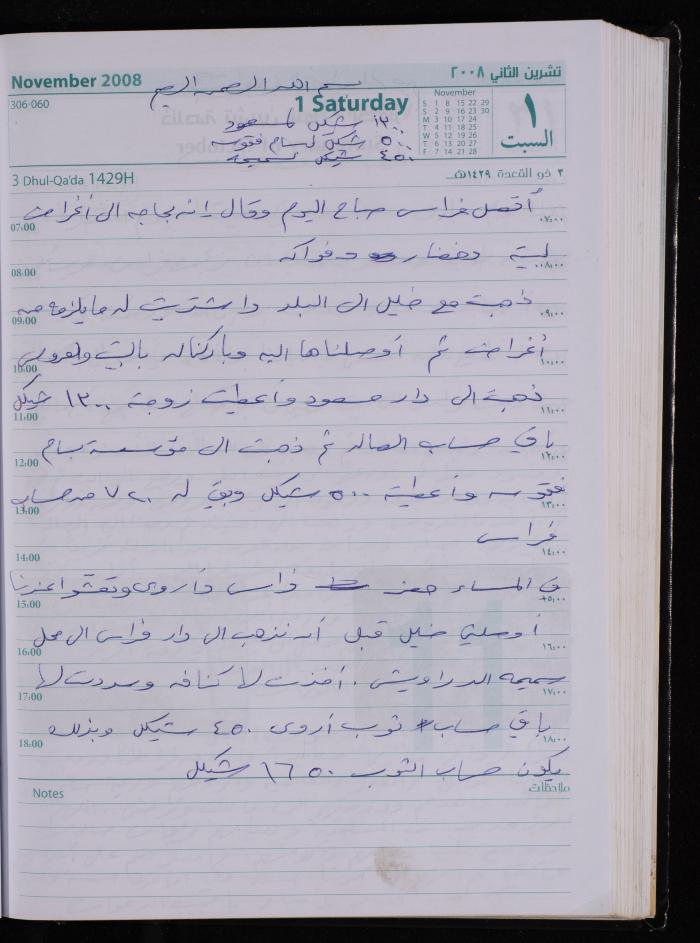 November 2008
تشرين الثاني ٢٠٠٨
بسم الله الرحمن الرحيم
306-060
1 Saturday
November
S 1 8 15 22 29
S 2 9 16 23 30
M 3 10 17 24
T 4 11 18 25
W 5 12 19 26
T 6 13 20 27
F 7 14 21 28
١
السبت
١٣٠٠ شيكل مسعود
٥٠٠ شيكل لبسام فقوسه
٤٥٠ شيكل لسميحه
3 Dhul-Qa'da 1429H
٣ ذو القعدة ١٤٢٩هـ
أتصل فراس صباح اليوم وقال انه بحاجه الى أغراض
07:00 ٠٧:٠٠
وخضار وفواكه
08:00 ٠٨:٠٠
ذهبت مع خليل الى البلد واشتريت له ما يلزمه من
09:00 ٠٩:٠٠
أغراض ثم أوصلناها اليه وباركنا له بالبيت والعروس
10:00 ١٠:٠٠
ذهبت الى دار مسعود وأعطيت زوجته ١٣٠٠ شيكل
11:00 ١١:٠٠
باقي حساب الصاله ثم ذهبت الى مؤسسة بسام
12:00 ١٢:٠٠
فقوسه وأعطيته ٥٠٠ شيكل وبقي له ٧٢٠ من حساب
13:00 ١٣:٠٠
فراس
14:00 ١٤:٠٠
في المساء حضر فراس وأروى وتعشوا عندنا
15:00 ١٥:٠٠
أوصلني خليل قبل أن نذهب الى دار فراس الى محل
16:00 ١٦:٠٠
سميحه الدراويش . أخذت لها كنافه وسددت لها
17:00 ١٧:٠٠
باقي حساب ثوب أروى ٤٥٠ شيكل وبذلك
18:00 ١٨:٠٠
يكون حساب الثوب ١٦٥٠ شيكل
Notes
ملاحظات